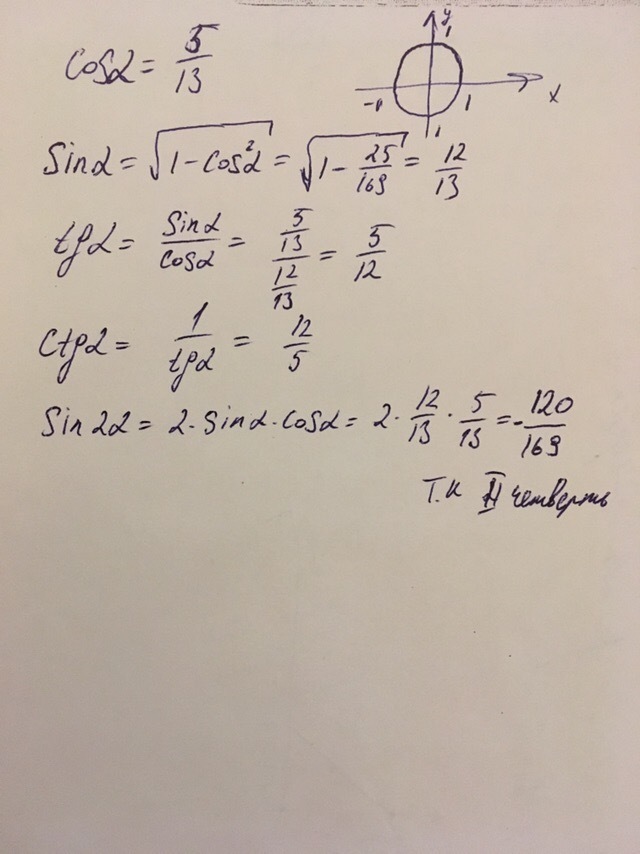 cosα = 5/13
y
1
-1
1
x
1
Sinα = √(1 - cos²α) = √(1 - 25/169) = 12/13
tgα = Sinα/cosα = (5/13)/(12/13) = 5/12
Ctgα = 1/tgα = 12/5
Sin2α = 2·Sinα·cosα = 2·12/13·5/13 = -120/169
Т.к II четверть